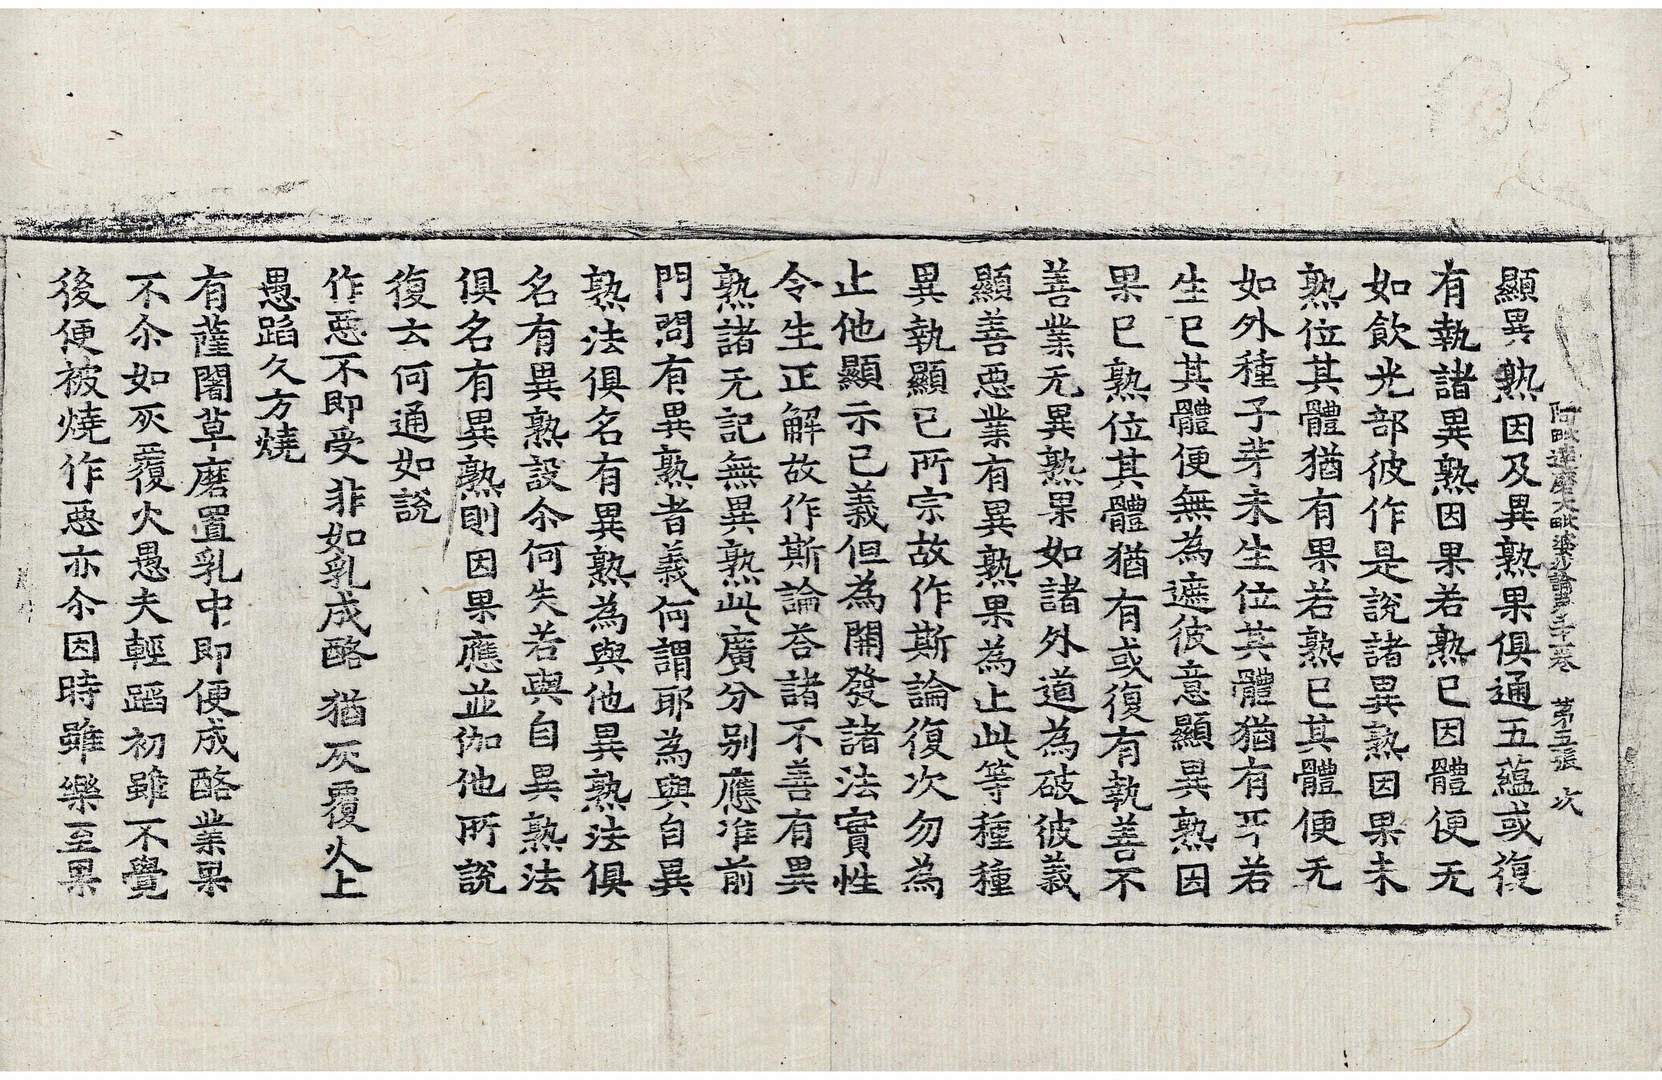 阿毗達磨大毗婆沙論 卷 第五張 次
顯異熟因及異熟果俱通五蘊或復
有執諸異熟因果若熟已因體便无
如飲光部彼作是說諸異熟因果未
熟位其體猶有果若熟已其體便无
如外種子芽未生位其體猶有芽若
生已其體便無為遮彼意顯異熟因
果已熟位其體猶有或復有執善不
善業无異熟果如諸外道為破彼義
顯善惡業有異熟果為止此等種種
異執顯已所宗故作斯論復次勿為
止他顯示已義但為開發諸法實性
令生正解故作斯論荅諸不善有異
熟諸无記無異熟此廣分別應准前
門問有異熟者義何謂耶為與自異
熟法俱名有異熟為與他異熟法俱
名有異熟設尒何失若與自異熟法
俱名有異熟則因果應並伽他所說
復云何通如說
作惡不即受 非如乳成酪 猶灰覆火上
愚蹈久方燒
有薩闍草磨置乳中即便成酪業果
不尒如灰覆火愚夫輕蹈初雖不覺
後便被燒作惡亦尒因時雖樂至果